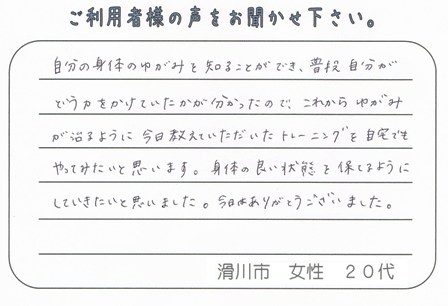 ご利用者様の声をお聞かせ下さい。
自分の身体のゆがみを知ることができ、普段自分が
どう力をかけていたかが分かったので、これからゆがみ
が治るように今日教えていただいたトレーニングを自宅でも
やってみたいと思います。身体の良い状態を保てるように
していきたいと思いました。今日はありがとうございました。
滑川市　女性　２０代